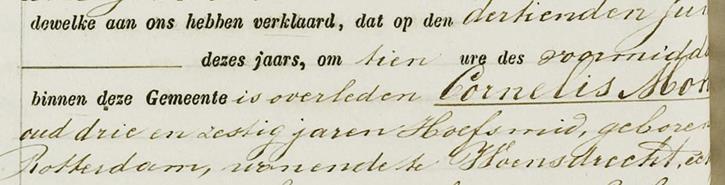 dewelke aan ons hebben verklaard, dat op den dertienden
dezes jaars, om tien ure des voormidd
binnen deze Gemeente is overleden Cornelis Mon
oud drie en zestig jaren Hoefsmid, geboren
Rotterdam, wonende te Woensdrecht, ech